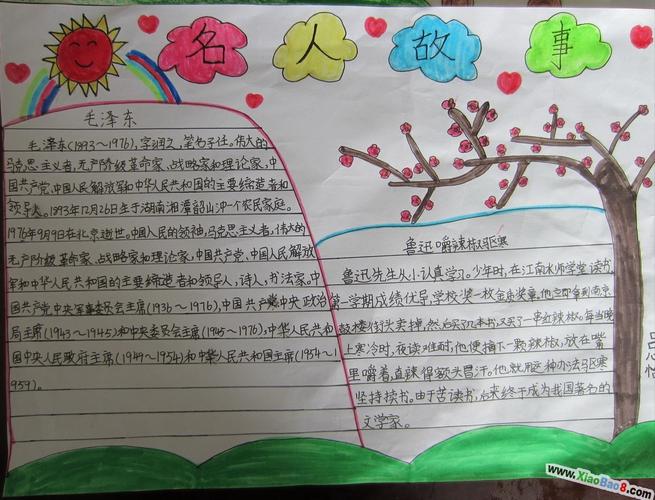 名人故事
毛泽东
毛泽东(1893～1976),字润之,笔名子任。伟大的
马克思主义者,无产阶级革命家、战略家和理论家,中
国共产党、中国人民解放军和中华人民共和国的主要缔造者和
领导人。1893年12月26日生于湖南湘潭韶山冲一个农民家庭。
1976年9月9日在北京逝世。中国人民的领袖,马克思主义者,伟大的
无产阶级革命家、战略家和理论家,中国共产党、中国人民解放
军和中华人民共和国的主要缔造者和领导人,诗人,书法家,中
国共产党中央军事委员会主席(1936～1976),中国共产党中央政治
局主席(1943～1945)和中央委员会主席(1945～1976),中华人民共和
国中央人民政府主席(1949～1954)和中华人民共和国主席(1954～1
959)。
鲁迅嚼辣椒驱寒
鲁迅先生从小认真学习。少年时,在江南水师学堂读书,
第一学期成绩优异,学校奖一枚金质奖章。他立即拿到南京
鼓楼街头卖掉,然后买了几本书,又买了一串红辣椒。每当晚
上寒冷时,夜读难耐,他便摘下一颗辣椒,放在嘴
里嚼着,直辣得额头冒汗。他就用这种办法驱寒
坚持读书。由于苦读书,后来终于成为我国著名的
文学家。
www.XiaoBao8.com